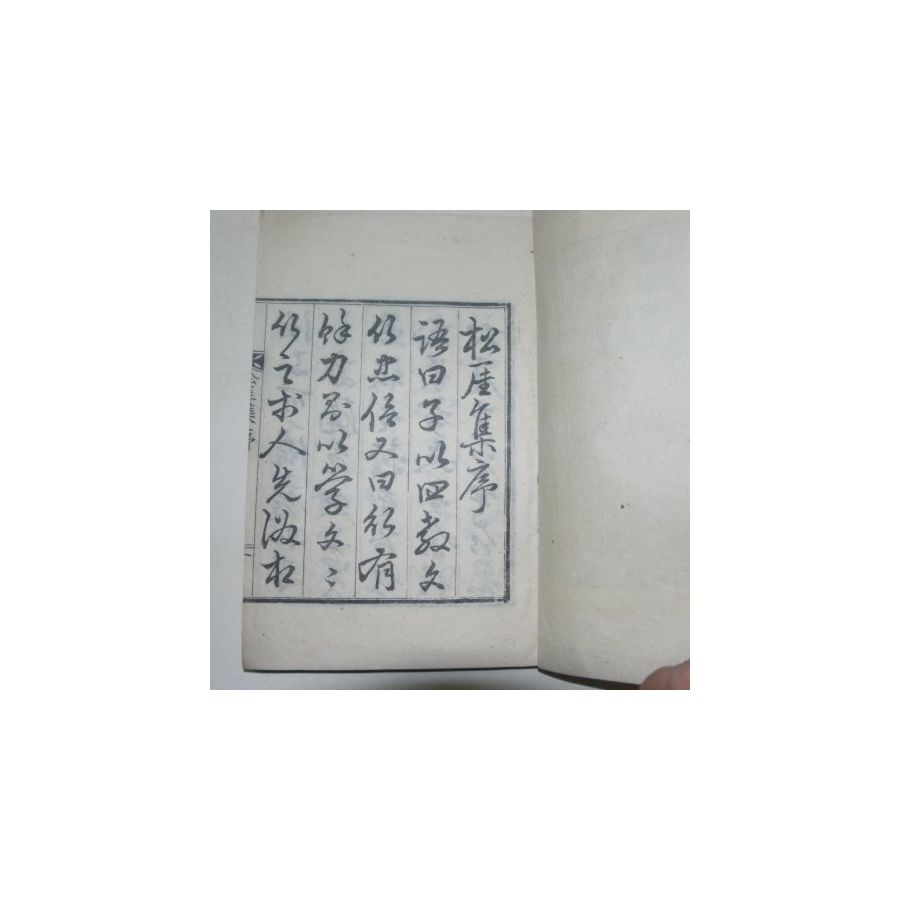 松厓集序
語曰子以四教文
行忠信又曰行有
餘力則以学文文
行之於人先後相